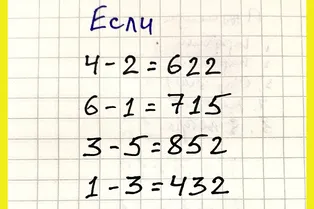 Если
4 - 2 = 622
6 - 1 = 715
3 - 5 = 852
1 - 3 = 432